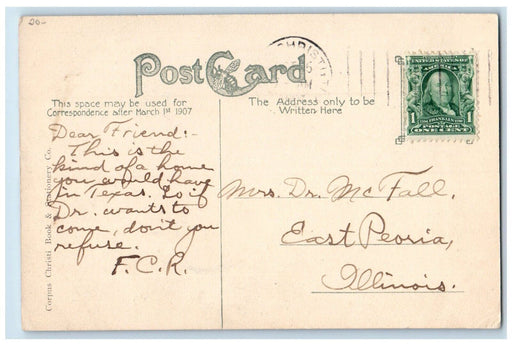 20-
Post Card
This space may be used for
Correspondence after March 1st 1907
The Address only to be
Written Here
CHRISTI
UNITED STATES OF
AMERICA
FRANKLIN
1 POSTAGE 1
ONE CENT
Dear Friend:-
This is the
kind of a home
you would have
in Texas. So if
Dr. wants to
come, don't you
refuse.
F.C.R.
Mrs. Dr. Mc Fall.
East Peoria,
Illinois.
Corpus Christi Book & Stationery Co.